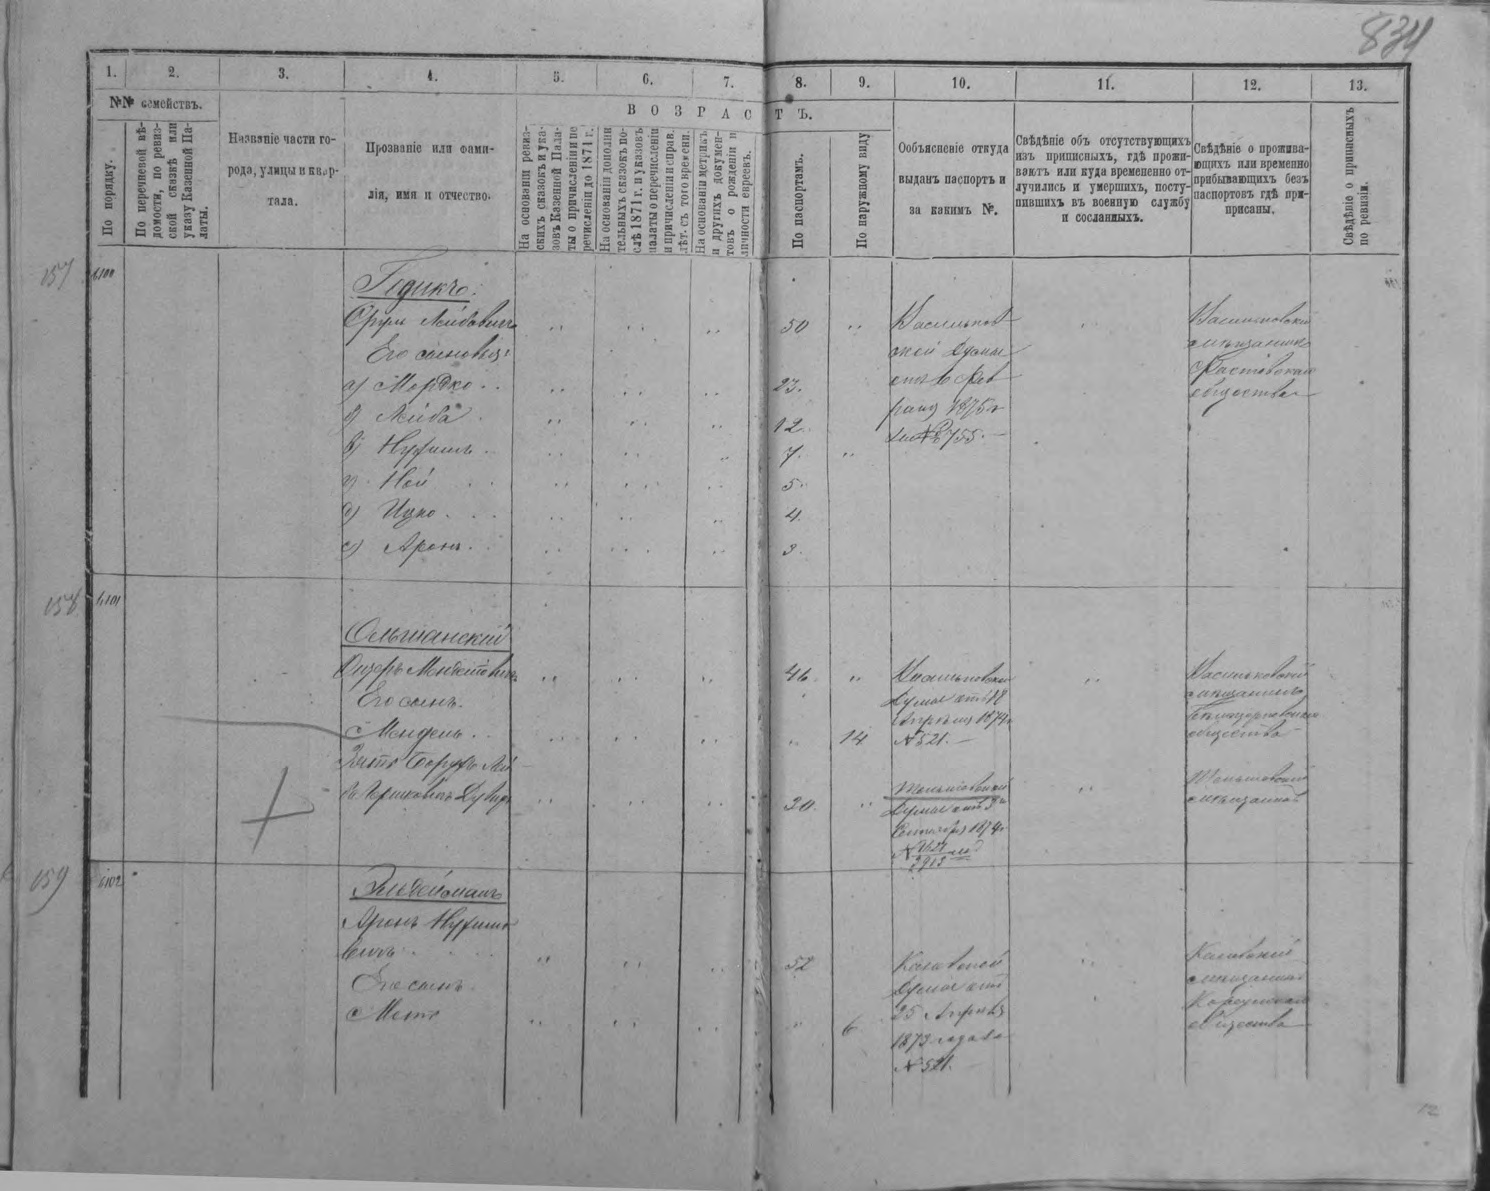 834
1.
2.
3.
4.
5.
6.
7.
8.
9.
10.
11.
12.
13.
№№ семействъ.
По порядку.
По перечневой вѣ-
домости, по ревиз-
ской сказкѣ или
указу Казенной Па-
латы.
Названіе части го-
рода, улицы и квар-
тала.
Прозваніе или фами-
лія, имя и отчество.
ВОЗРАСТЪ.
На основаніи ревиз-
скихъ сказокъ и ука-
зовъ Казенной Пала-
ты о причисленіи и пе
речисленіи до 1871 г.
На основаніи дополни
тельныхъ сказокъ по-
слѣ 1871 г. и указовъ
палаты о перечисленіи
и причисленіи и справ.
лѣт. съ того времени.
На основаніи метрикъ
и другихъ докумен-
товъ о рожденіи и
личности евреевъ.
По паспортамъ.
По наружному виду
Объясненіе откуда
выданъ паспортъ и
за какимъ №.
Свѣдѣніе объ отсутствующихъ
изъ приписныхъ, гдѣ прожи-
ваютъ или куда временено от-
лучились и умершихъ, посту-
пившихъ въ военную службу
и сосланныхъ.
Свѣдѣніе о прожива-
ющихъ или временно
прибывающихъ безъ
паспортовъ гдѣ при-
писаны.
Свѣдѣніе о приписныхъ
по ревизіи.
157
6100
Сруль Лейбовичъ
50
Его сыновья:
а) Мордко
23.
б) Лейба
12
в) Нухимъ
7.
г) Ной
5
д) Ицко
4
е) Аронъ
3
Васильков-
ской Думы
отъ 6 Фев
раля 1875 г
за № 755.
Васильковскій
мѣщанинъ
Фастовскаго
общества
158
6101
Ольшанскій
46
Его сынъ.
Мендель
14
20
Васильковской
Думы отъ 18
Апрѣля 1874 г
№ 521.
Думы отъ
Сентября 1874 г.
Васильковскій
мѣщанинъ
общества
мѣщанинъ
159
6102
Аронъ Нухимо
вичъ
52
Его сынъ.
6
Каневской
Думы отъ
25 Апрѣля
1873 года за
№ 521.
Каневскій
мѣщанинъ
Корсунскаго
общества
12